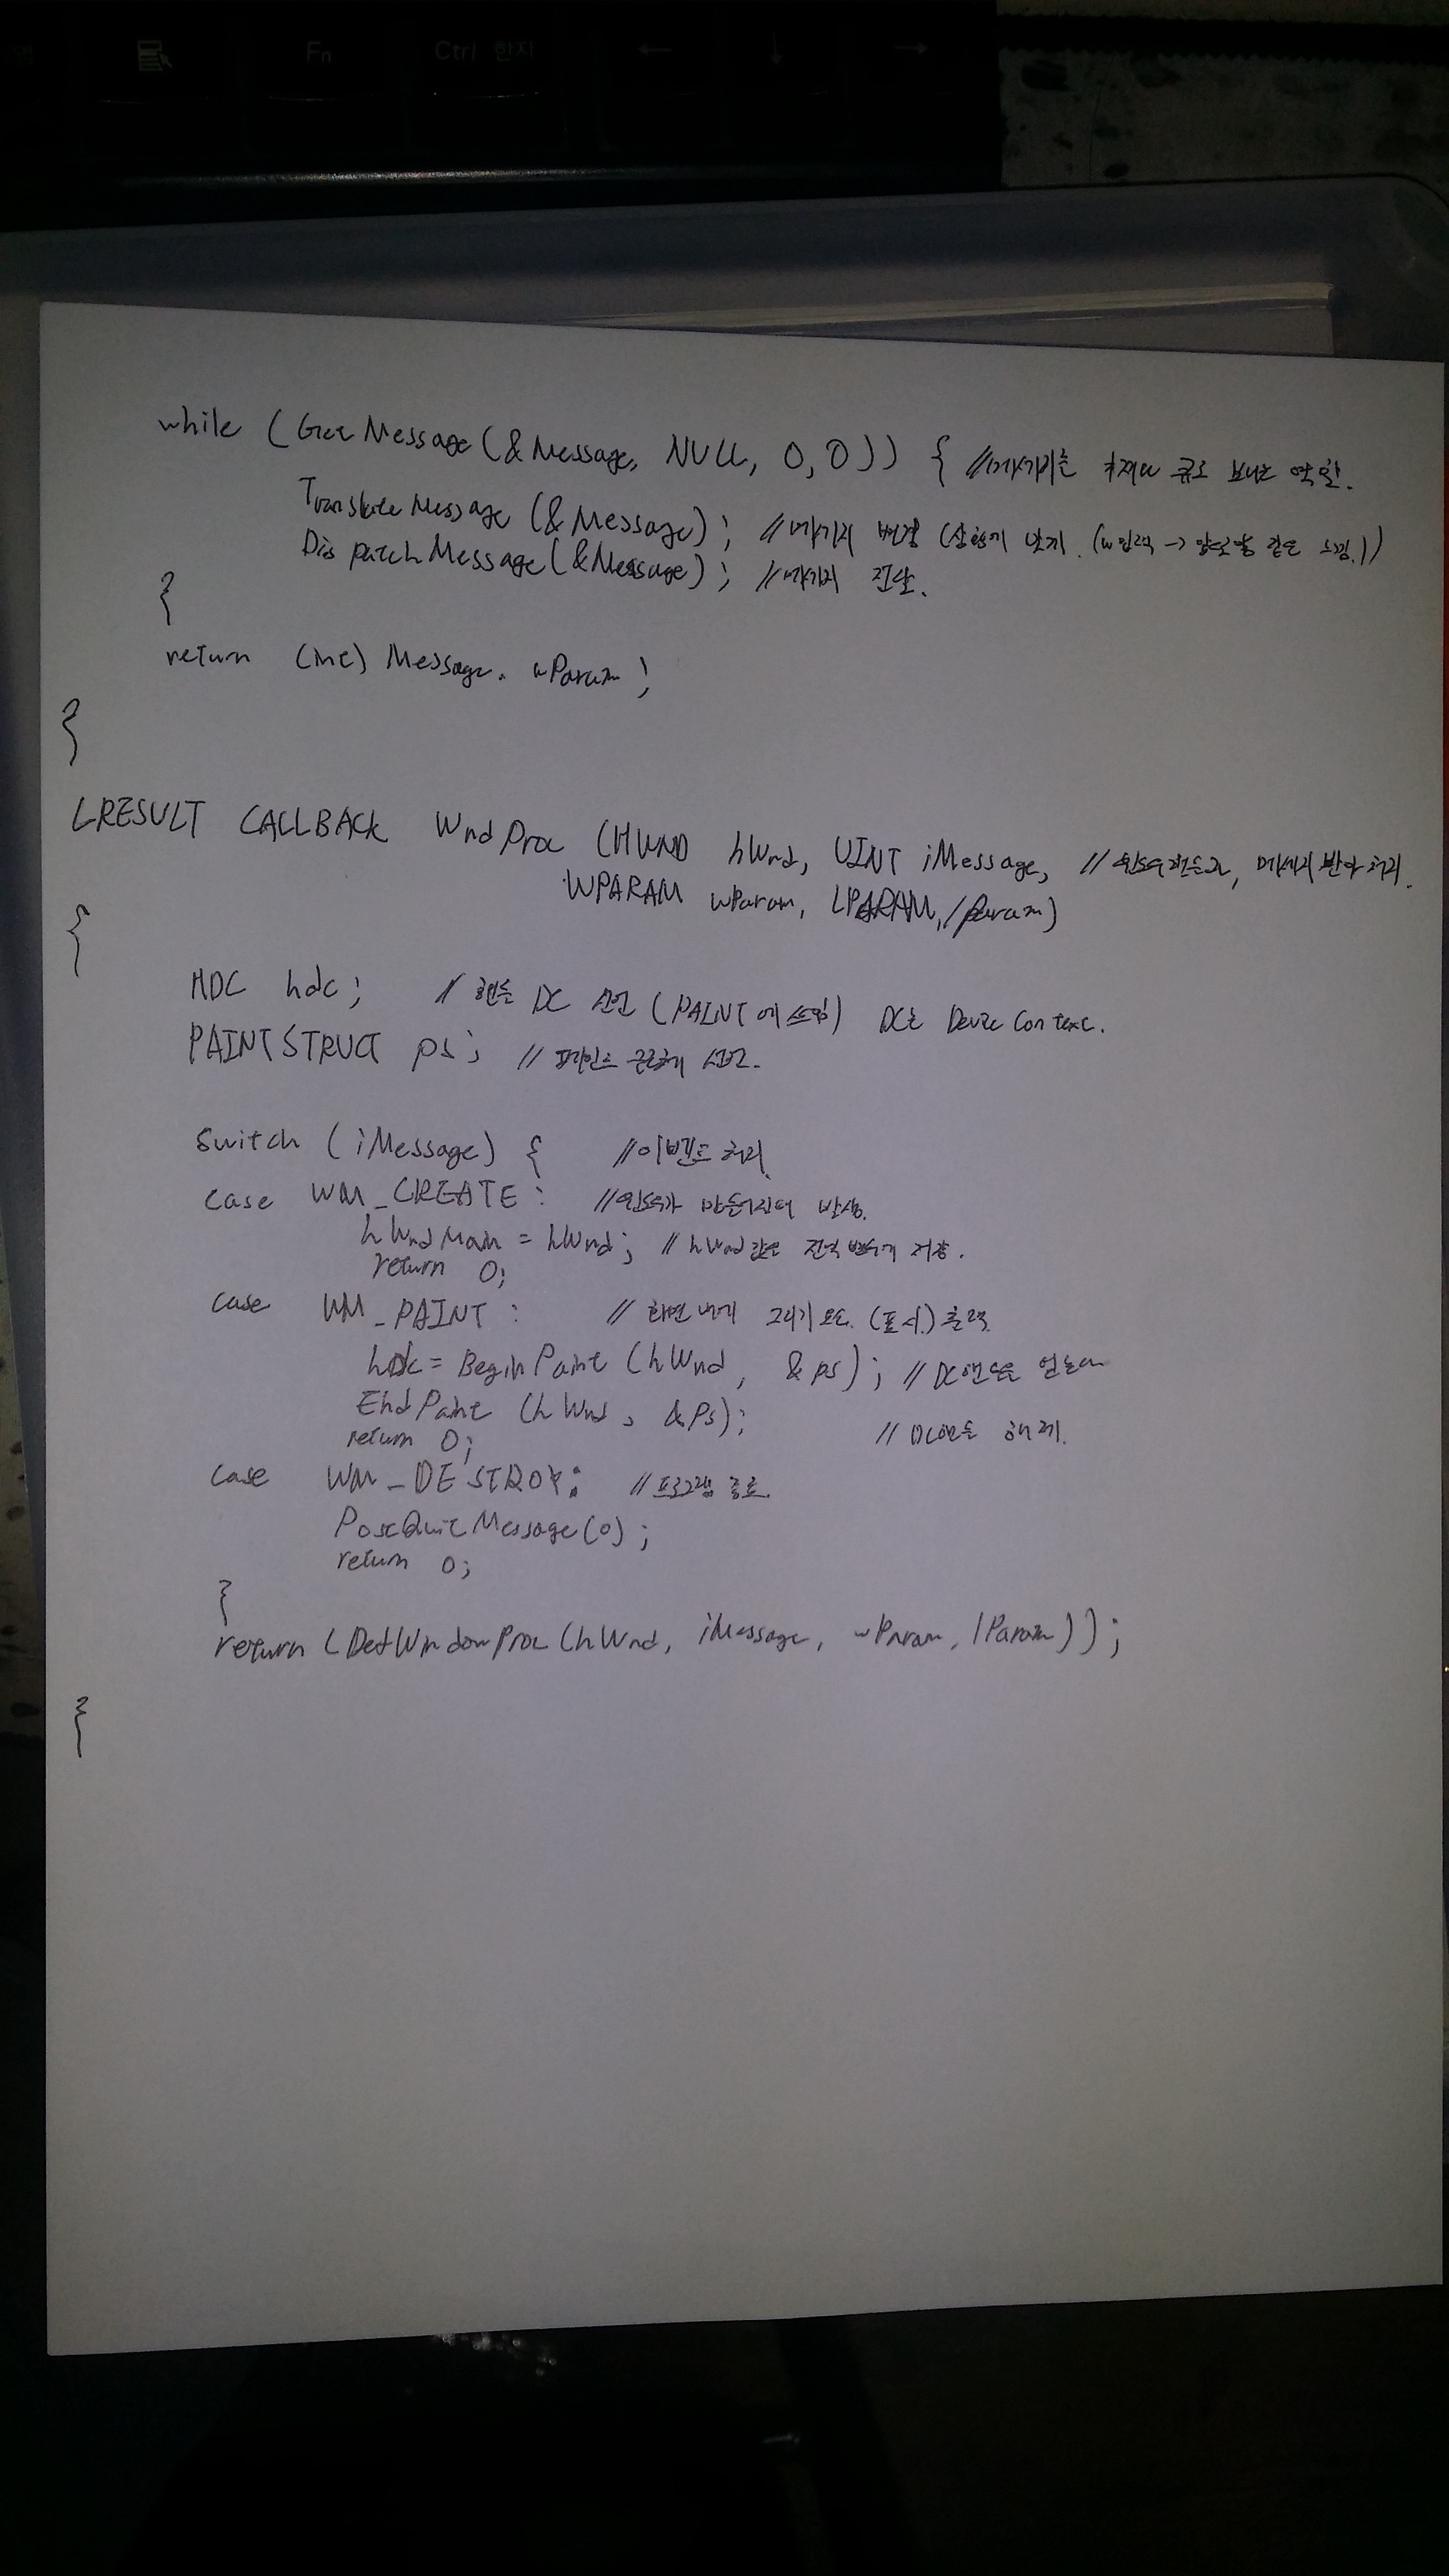 Fn Ctrl 한자 ← ↓ →
while (GetMessage(&Message, NULL, 0,0)) { //메시지를 큐로 보내는 역할.
TranslateMessage (&Message); //메시지 변경 (상황에 맞게. (w입력 -> 같은 느낌.))
Dispatch Message(&Message); //메시지 전달.
}
return (int) Message. wParam;
}
LRESULT CALLBACK WndProc (HWND hWnd, UINT iMessage, //윈도우핸들과, 메세지 받아 처리.
WPARAM wParam, LPARAM, lParam)
{
HDC hdc; // 핸들 DC 선언 (PAINT에 쓰임) DC는 Device Context.
PAINTSTRUCT ps; // 페인트 구조체 선언.
Switch (iMessage) { //이벤트 처리.
case WM_CREATE : //윈도우가 만들어진때 발생.
hWndMain = hWnd; // hWnd값을 전역 변수에 저장.
return 0;
case WM_PAINT : // 화면 내에 그리기 요소. (표시.) 출력.
hdc = BeginPaint (hWnd, &ps); // DC핸들을 얻는다
EndPaint (hWnd, &Ps); // DC핸들 해제.
return 0;
case WM_DESTROY: //프로그램 종료.
PostQuitMessage(0);
return 0;
}
return (DefWindowProc(hWnd, iMessage, wParam, lParam));
}